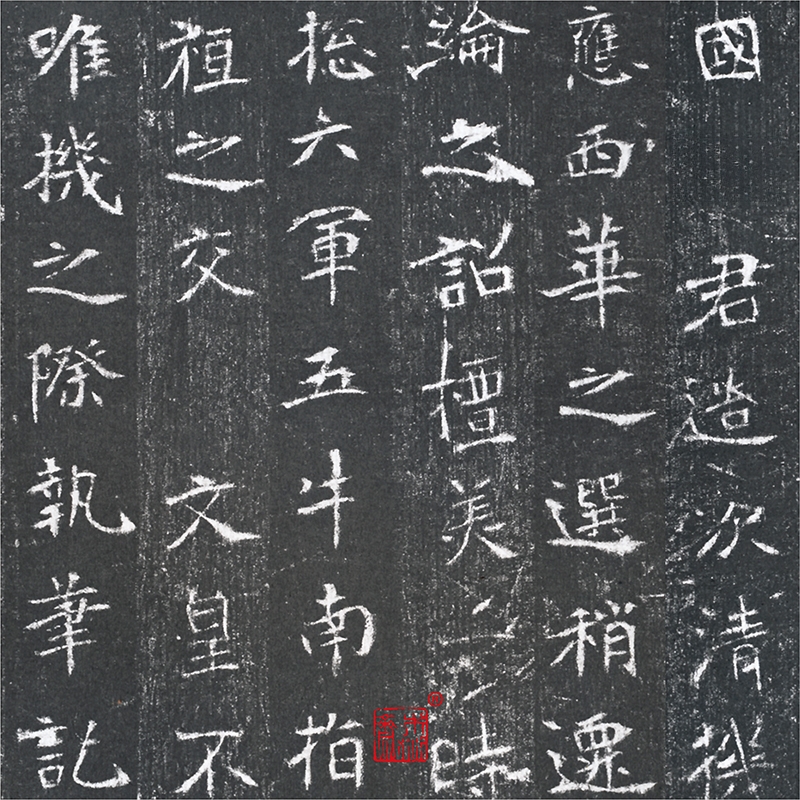 國 君造次清機
應西華之選稍遷
綸之詔擅美時
揔六軍五牛南指
之交 文皇不
唯機之際執筆託